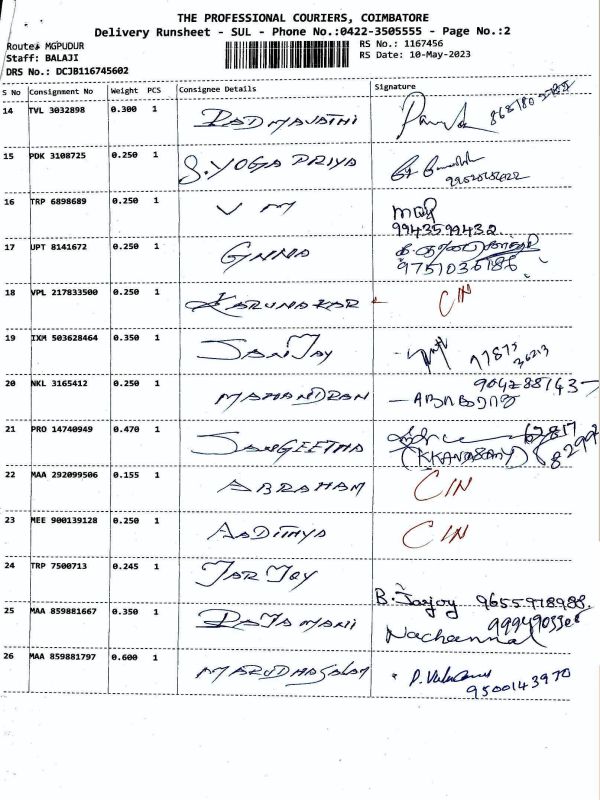 THE PROFESSIONAL COURIERS, COIMBATORE
Delivery Runsheet - SUL - Phone No.:0422-3505555 - Page No.:2
Route: MGPUDUR
RS No.: 1167456
Staff: BALAJI
RS Date: 10-May-2023
DRS No.: DCJB116745602
S No Consignment No Weight PCS Consignee Details Signature
14 TVL 3032898 0.300 1 PADMAVATHI
15 PDK 3108725 0.250 1 S.YOGA PRIYA
16 TRP 6898689 0.250 1 V M
9943599432
17 UPT 8141672 0.250 1 GNNA
18 VPL 217833500 0.250 1 KARUNAKAR CIN
19 IXM 503628464 0.350 1 SANJAY 77875 36213
20 NKL 3165412 0.250 1 MAHANDRAN
21 PRO 14740949 0.470 1 SANGEETHA
22 MAA 292099506 0.155 1 ABRAHAM CIN
23 MEE 900139128 0.250 1 AADITHYA CIN
24 TRP 7500713 0.245 1 JAR JOY
B. Jarjoy 9655978988
25 MAA 859881667 0.350 1 RAJAMANI
Nachammal
26 MAA 859881797 0.600 1 MARUDHASALAM
9500143970